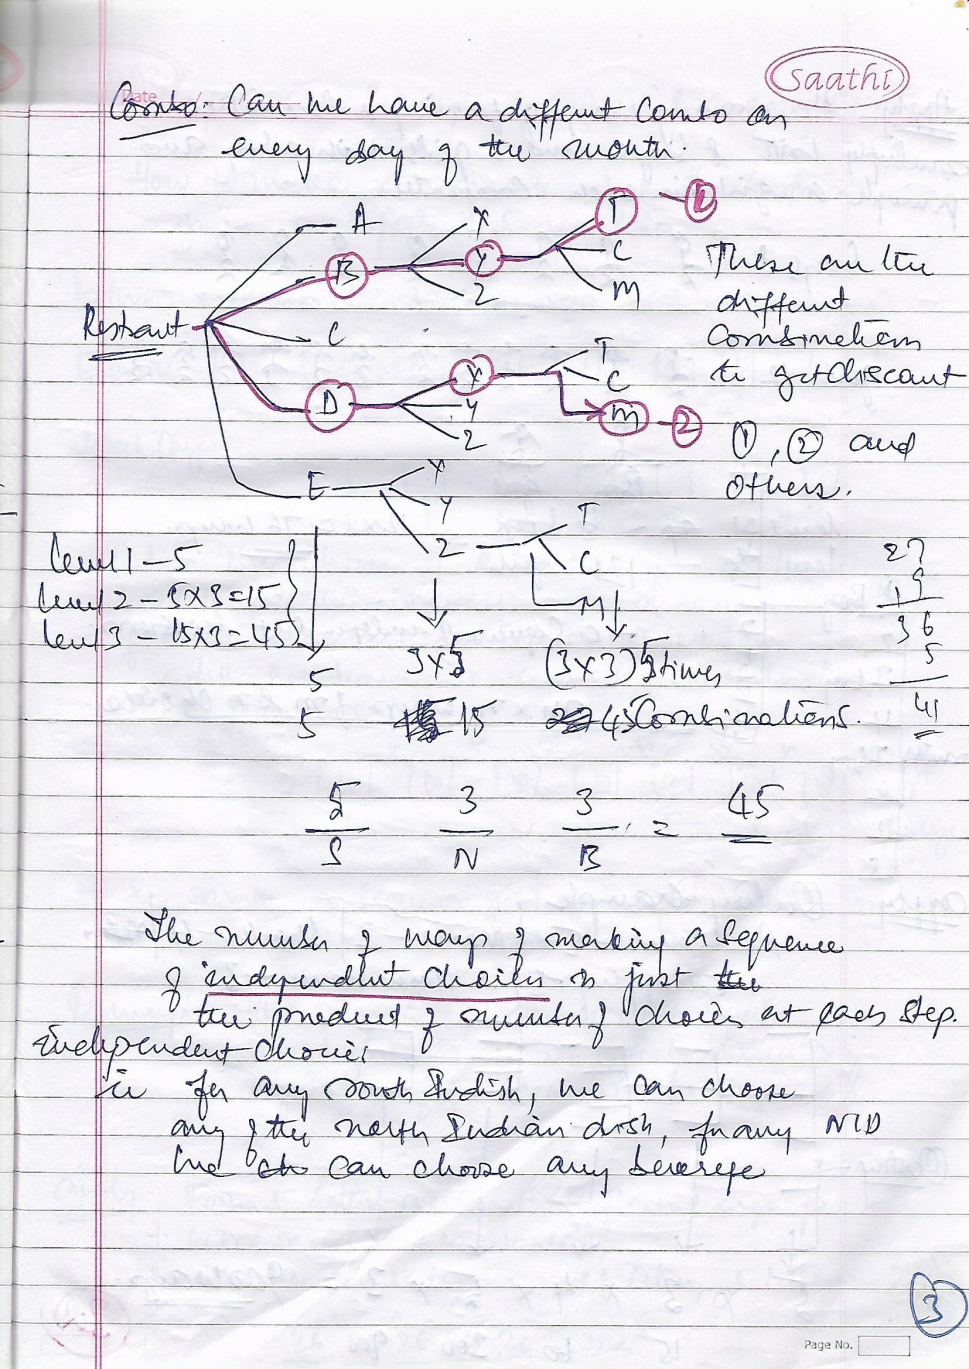 Saathi
Date
Combo: Can we have a different Combo on
every day of the month.
A
B
X
Y
Z
T
C
M
1
Restraut
C
D
X
Y
Z
T
C
M
2
These are the
different
Combination
to get discount
1, 2 and
others.
E
X
Y
Z
T
C
M
level 1 - 5
level 2 - 5x3=15
level 3 - 15x3=45
5
3x5
(3x3) 5 times
5
15
45 Combinations.
27
9
36
5
41
5 3 3 = 45
S N B
The number of ways of making a sequence
of independent choices is just the
the product of number of choices at each step.
independent choices
ie for any south Indish, we can choose
any of the north Indian dish, for any NID
we can choose any beverage
3
Page No.